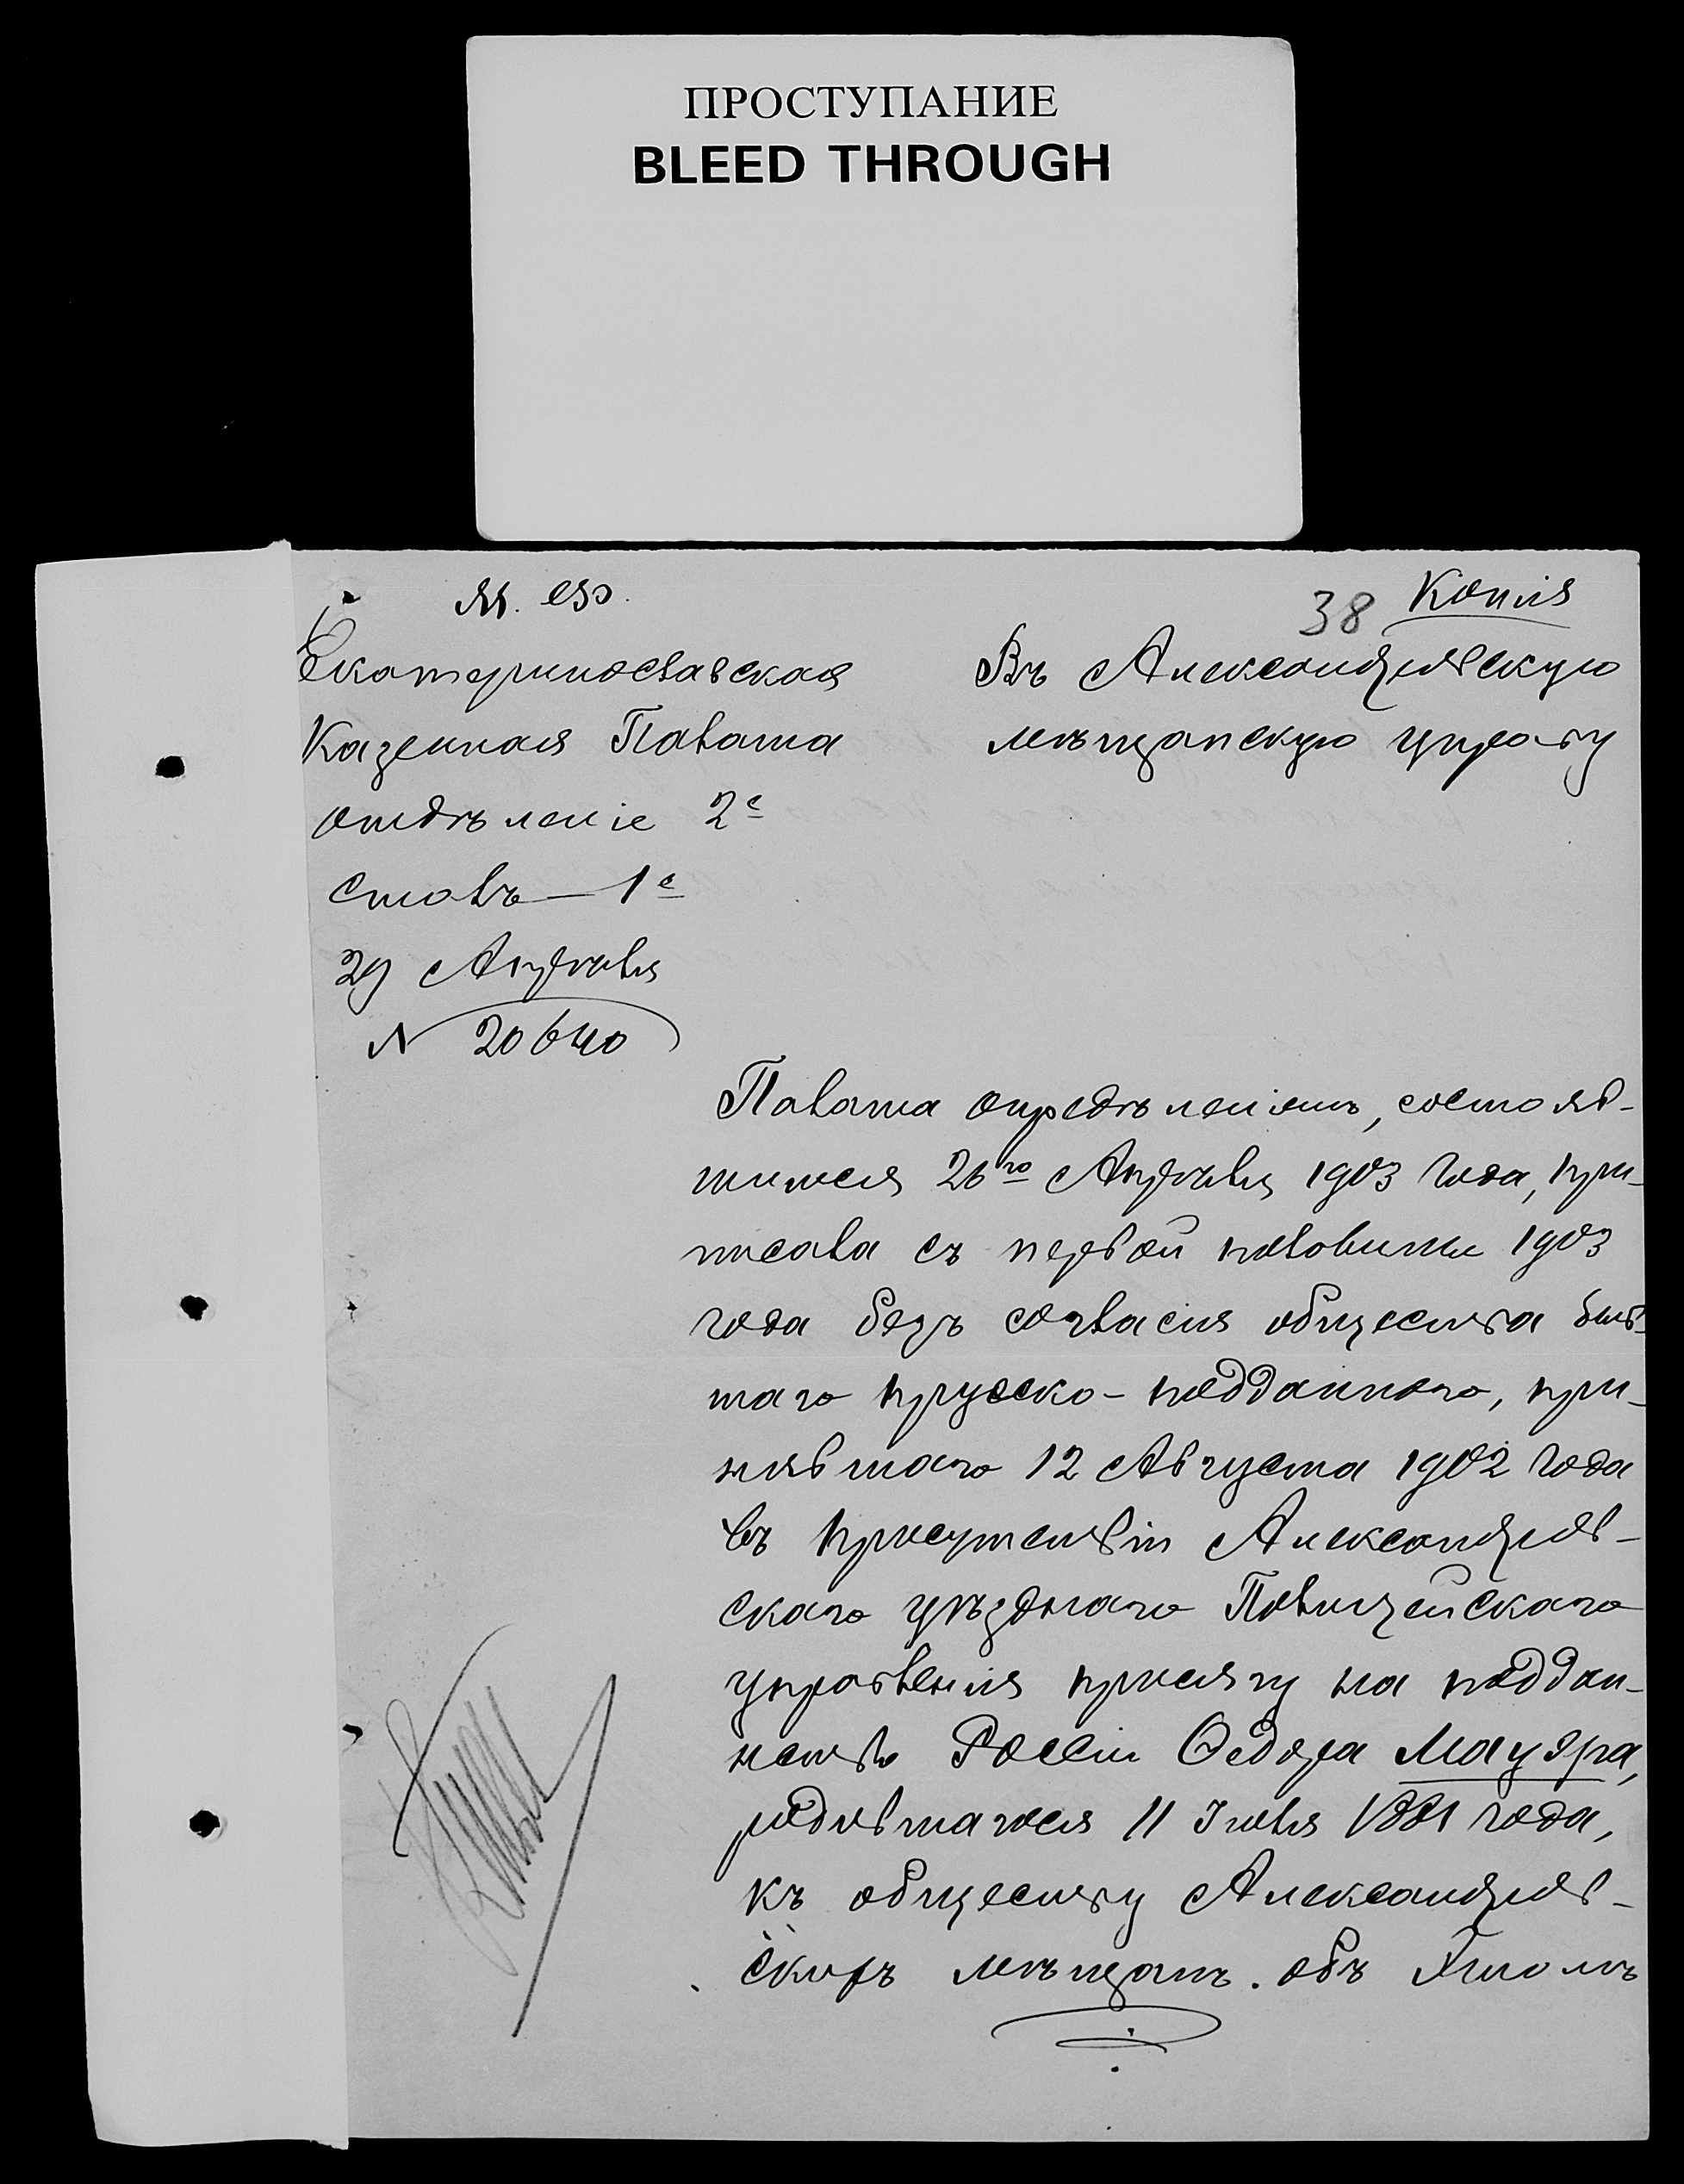 ПРОСТУПАНИЕ
BLEED THROUGH
М. Ф.
38 Копія
Екатеринославская
Казенная Палата
отдѣленіе 2е
столъ — 1е
29 Апрѣля
N 20640
Въ Александровскую
мѣщанскую управу
Палата опредѣленіемъ, состояв-
шимся 26го Апрѣля 1903 года, при-
писала съ первой половины 1903
года безъ согласія общества быв-
шаго прусско-подданного, при-
нявшаго 12 Августа 1902 года
въ присутствіи Александров-
скаго уѣзднаго Полицейскаго
управленія присягу на поддан-
ство Россіи Ѳедора Мауэра,
родившагося 11 Іюля 1881 года,
къ обществу Александров-
скихъ мѣщанъ. объ этомъ